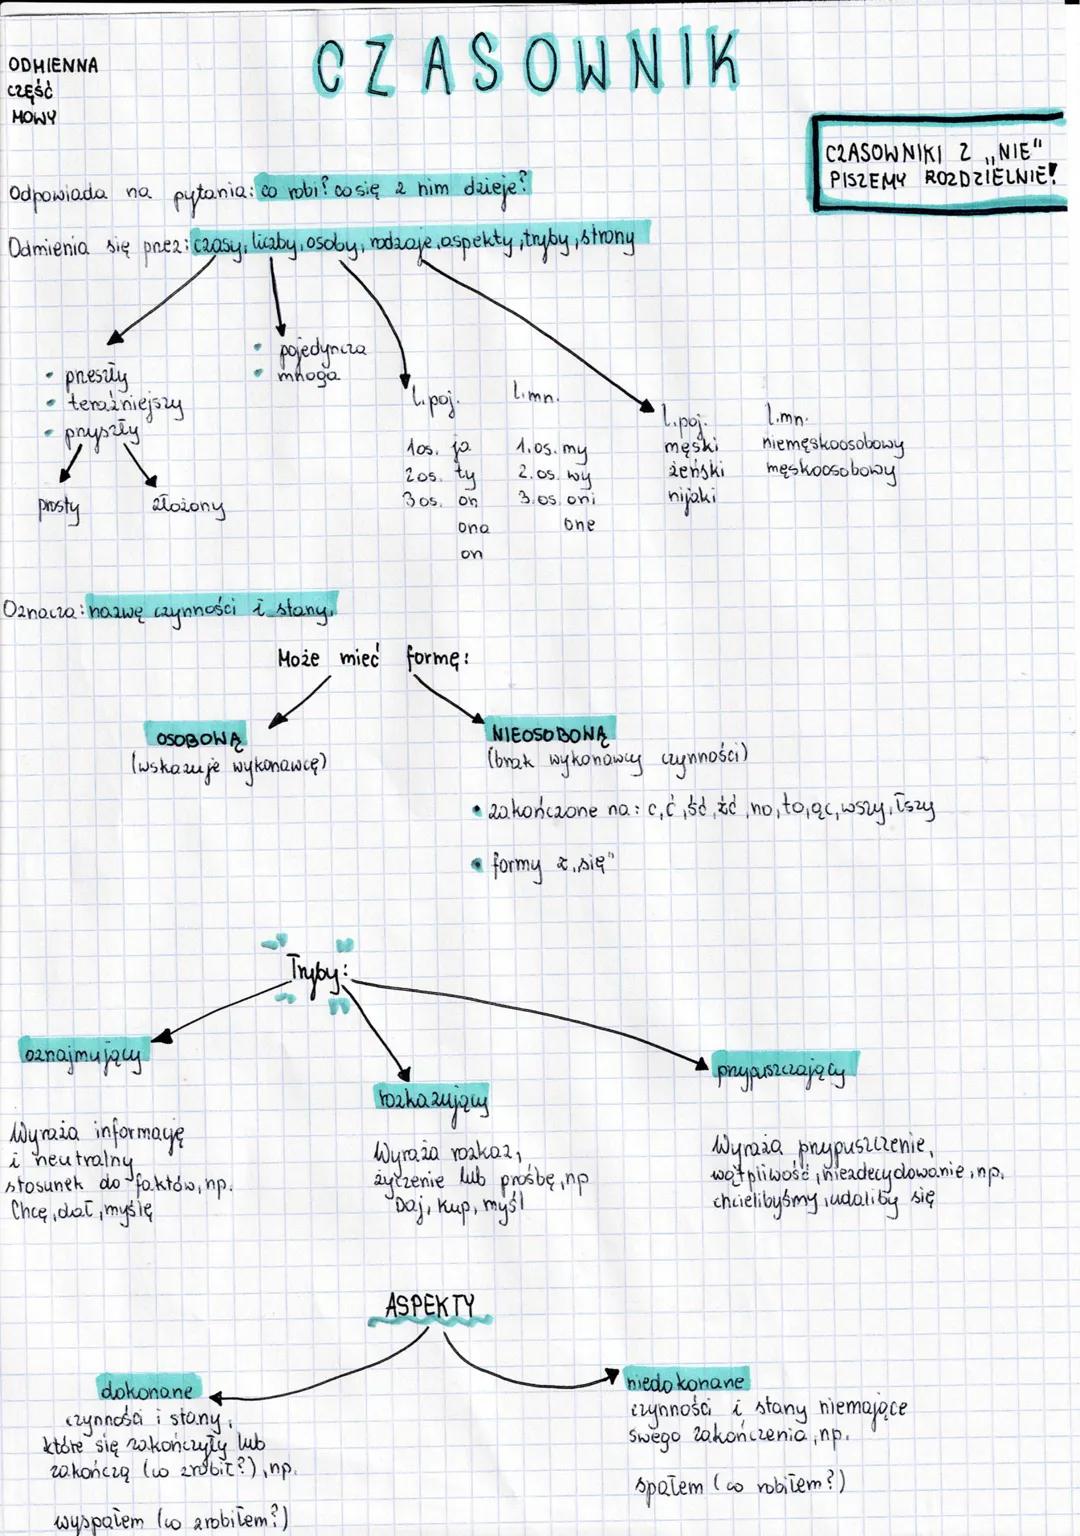 CZASOWNIK
ODMIENNA
CZĘŚĆ
MOWY
CZASOWNIKI Z „NIE"
PISZEMY ROZDZIELNIE!
Odpowiada na pytania: co robi? co się z nim dzieje?
Odmienia się przez: czasy, liczby, osoby, rodzaje, aspekty, tryby, strony
• przeszły
• teraźniejszy
• przyszły
prosty złożony
• pojedyncza
• mnoga
l.poj. l.mn.
1os. ja 1.os. my
2os. ty 2.os. wy
3os. on 3.os. oni
ona one
on
l.poj. l.mn.
męski niemęskoosobowy
żeński męskoosobowy
nijaki
Oznacza: nazwę czynności i stany.
Może mieć formę:
OSOBOWĄ
(wskazuje wykonawcę)
NIEOSOBOWĄ
(brak wykonawcy czynności)
• zakończone na: c, ć, ść, źć, no, to, ąc, wszy, łszy
• formy z „się"
Tryby:
oznajmujący
Wyraża informację
i neutralny
stosunek do faktów, np.
Chcę, dał, myślę
rozkazujący
Wyraża rozkaz,
życzenie lub prośbę, np
Daj, kup, myśl
przypuszczający
Wyraża przypuszczenie,
wątpliwość, niezdecydowanie, np.
chcielibyśmy, udaliby się
ASPEKTY
dokonane
czynności i stany,
które się zakończyły lub
zakończą (co zrobić?), np.
wyspałem (co zrobiłem?)
niedokonane
czynności i stany niemające
swego zakończenia, np.
spałem (co robiłem?)